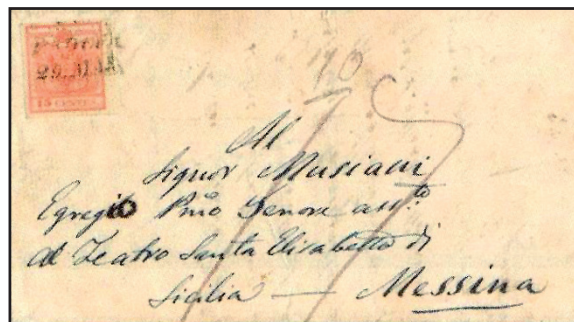 PADOVA
29. MAR
15 CENTES
10
Al
Signor Musiani
Egregio Pmo Tenore ass.to
al Teatro Santa Elisabetta di
Sicilia — Messina